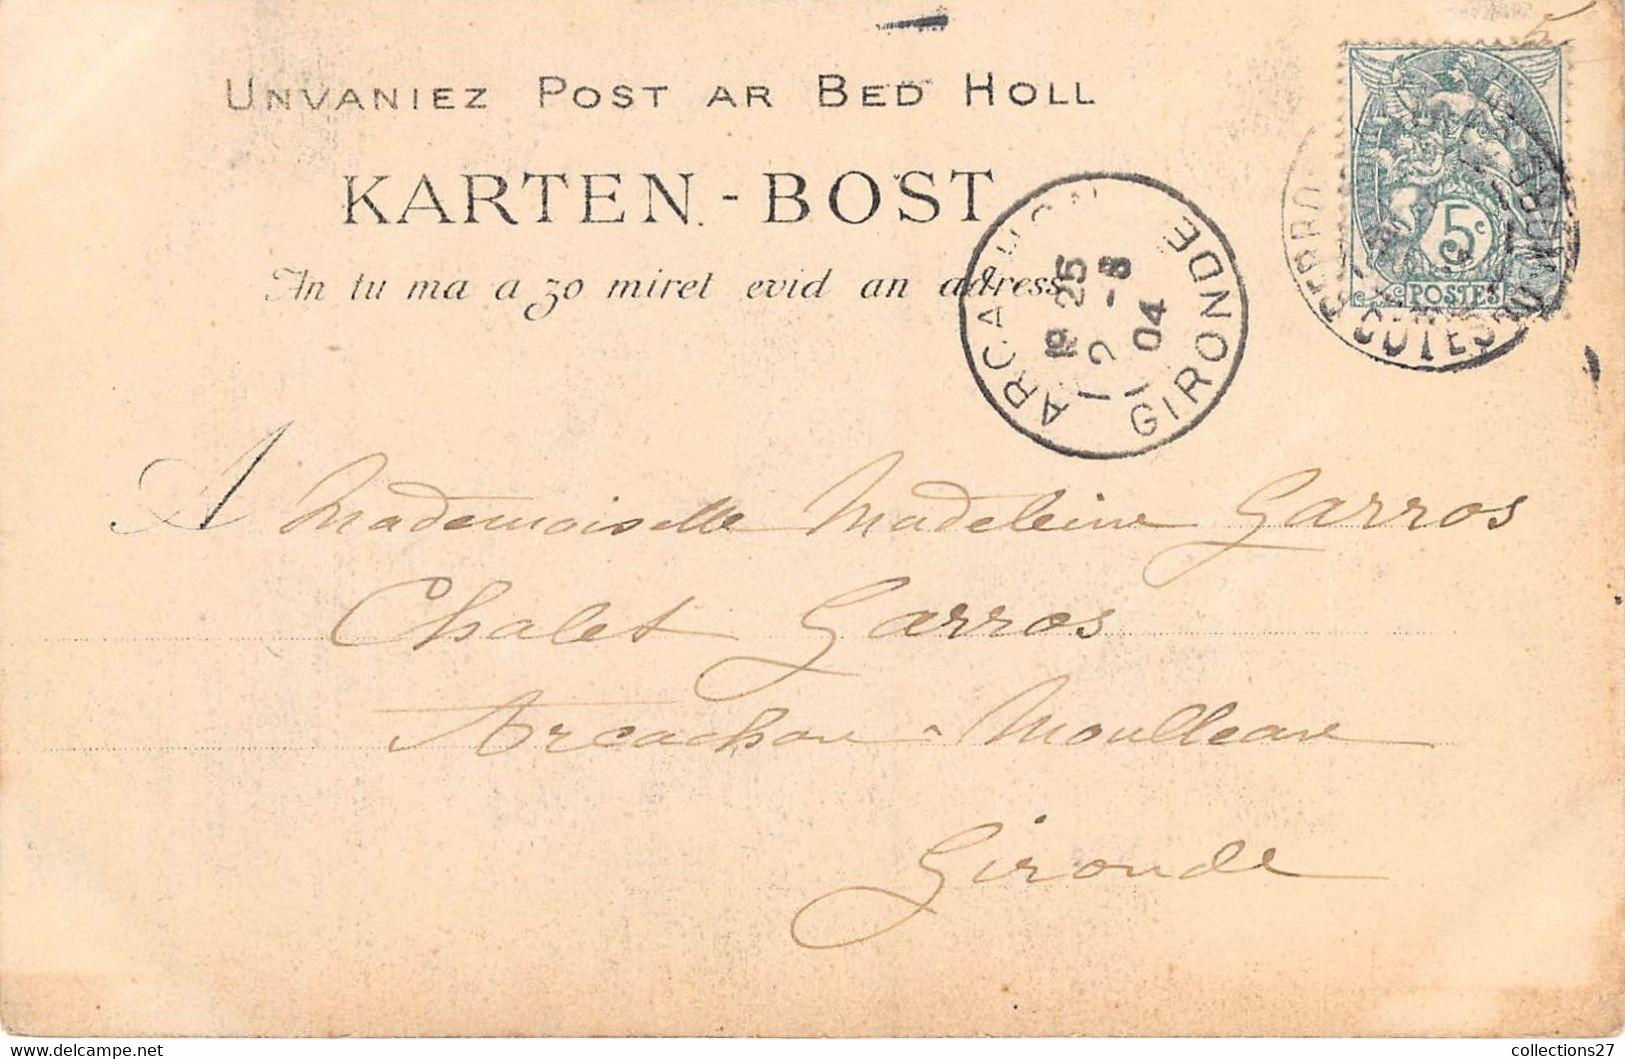 UNVANIEZ POST AR BED HOLL
KARTEN-BOST
An tu ma a zo miret evid an adress
ARCACHON
GIRONDE
25
2 -8
04
5c
POSTES
5
A Mademoiselle Madeleine Garros
Chalet Garros
Arcachon - Moulleau
Gironde
collections27